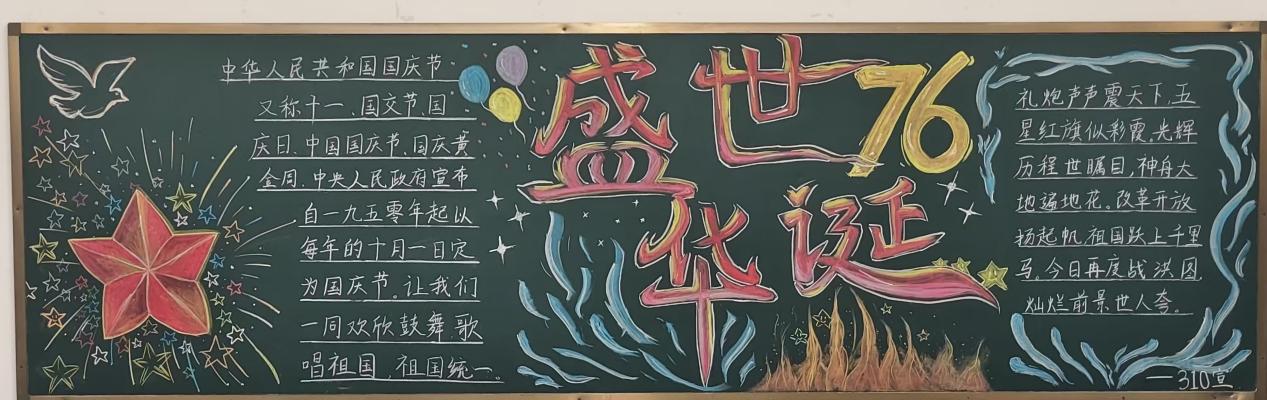 中华人民共和国国庆节
又称十一、国交节、国
庆日、中国国庆节、国庆黄
金周、中央人民政府宣布
自一九五零年起以
每年的十月一日定
为国庆节。让我们
一同欢欣鼓舞、歌
唱祖国，祖国统一。
盛世76
华诞
礼炮声声震天下，五
星红旗似彩霞。光辉
历程世瞩目，神舟大
地遍地花。改革开放
扬起帆，祖国跃上千里
马。今日再度战洪图，
灿烂前景世人夸。
—310宣